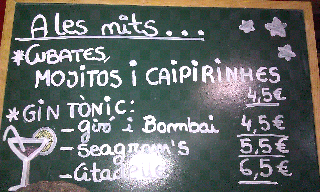 A les nits...
*CUBATES,
MOJITOS i CAIPIRINHES
4,5€
*GIN TÒNIC:
- giró i Bombai 4,5€
- Seagram's 5,5€
- Citadelle 6,5€